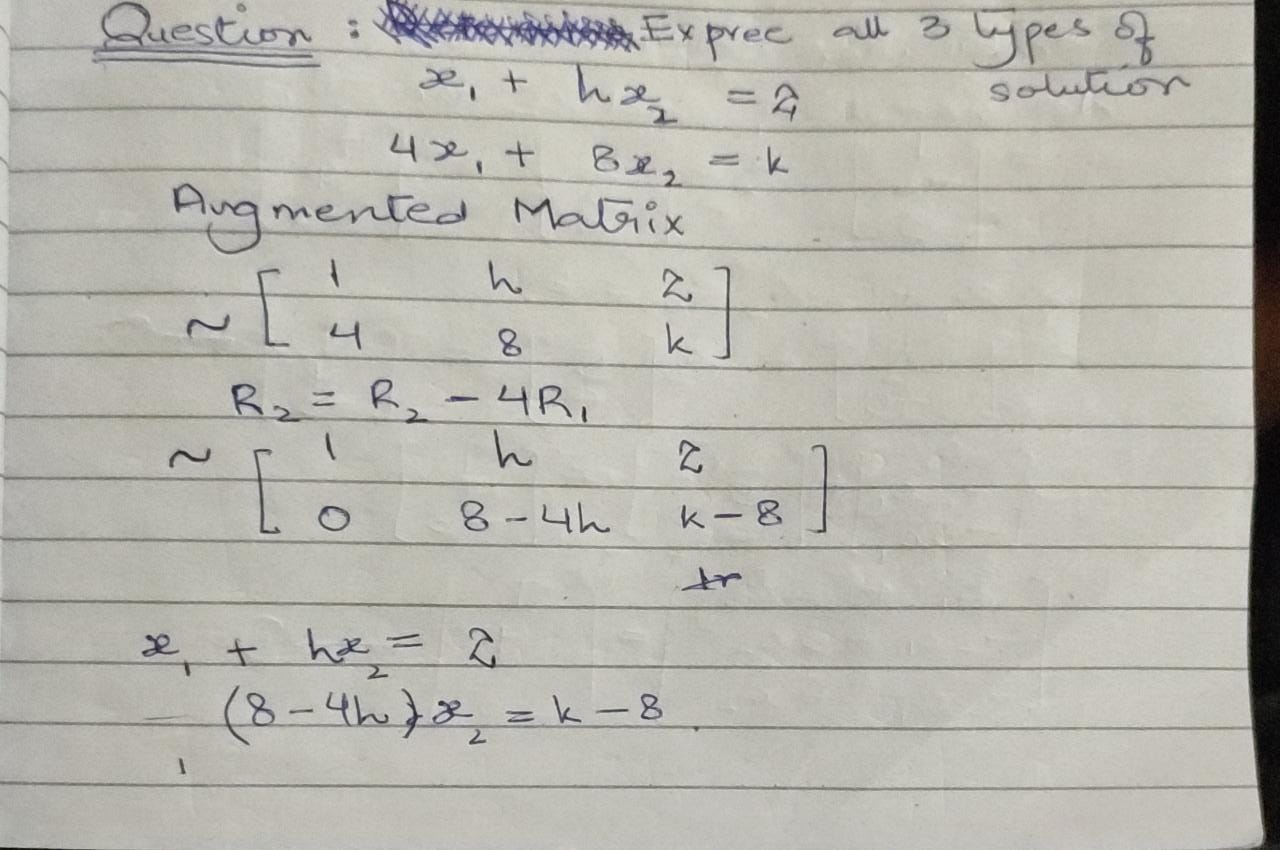 Question : Exprec all 3 types of
solution
x₁ + hx₂ = 2
4x₁ + 8x₂ = k
Augmented Matrix
~ [ 1 h 2
4 8 k ]
R₂ = R₂ - 4R₁
~ [ 1 h 2
0 8-4h k-8 ]
x₁ + hx₂ = 2
(8-4h)x₂ = k-8